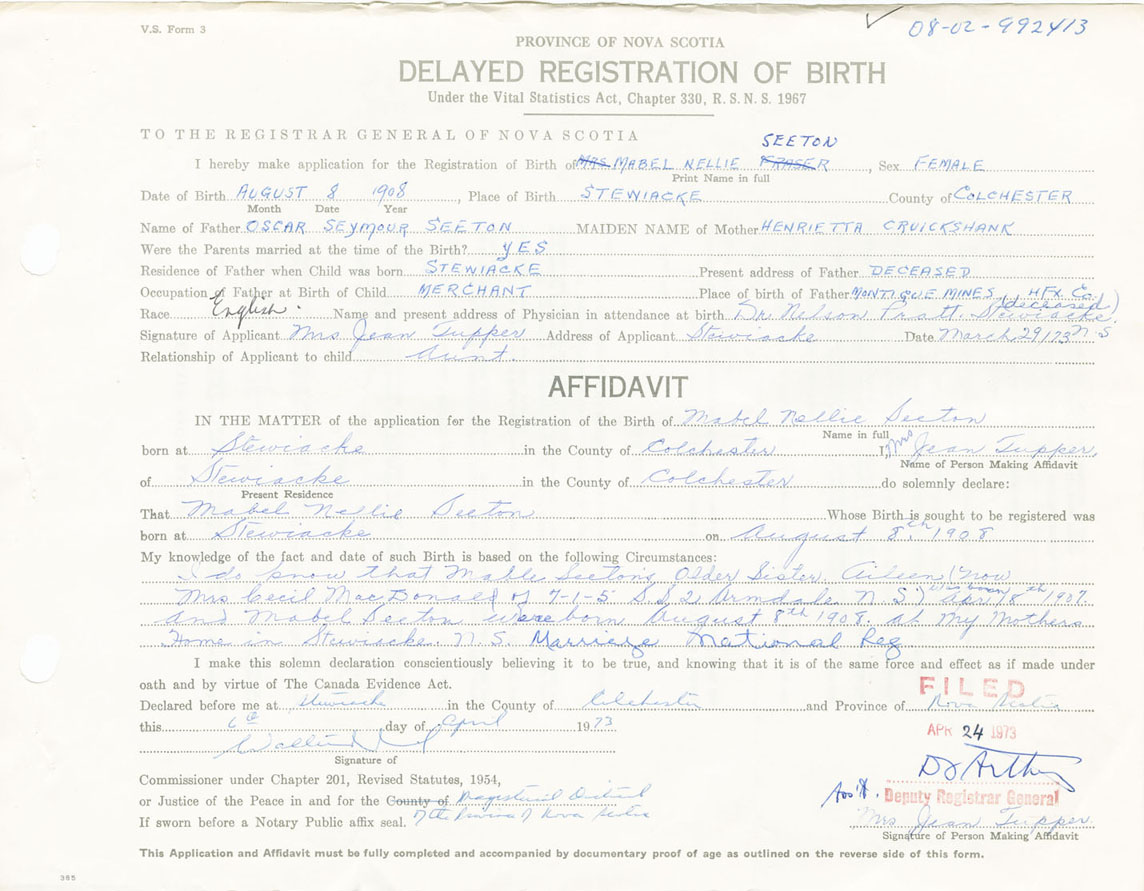 V.S. Form 3
08-02-992413
PROVINCE OF NOVA SCOTIA
DELAYED REGISTRATION OF BIRTH
Under the Vital Statistics Act, Chapter 330, R. S. N. S. 1967
TO THE REGISTRAR GENERAL OF NOVA SCOTIA
SEETON
I hereby make application for the Registration of Birth of MRS MABEL NELLIE FRASER, Sex FEMALE
Print Name in full
Date of Birth AUGUST 8 1908, Place of Birth STEWIACKE County of COLCHESTER
Month Date Year
Name of Father OSCAR SEYMOUR SEETON MAIDEN NAME of Mother HENRIETTA CRUICKSHANK
Were the Parents married at the time of the Birth? YES
Residence of Father when Child was born STEWIACKE Present address of Father DECEASED
Occupation of Father at Birth of Child MERCHANT Place of birth of Father MONTIGUE MINES, HFX Co.
(deceased)
Race English. Name and present address of Physician in attendance at birth Dr. Nelson Pratt. Stewiacke.
Signature of Applicant Mrs Jean Tupper Address of Applicant Stewiacke Date March 29/73 N.S
Relationship of Applicant to child Aunt.
AFFIDAVIT
IN THE MATTER of the application for the Registration of the Birth of Mabel Nellie Seeton
Name in full
born at Stewiacke in the County of Colchester I, Mrs Jean Tupper,
Name of Person Making Affidavit
of Stewiacke in the County of Colchester do solemnly declare:
Present Residence
That Mabel Nellie Seeton Whose Birth is sought to be registered was
born at Stewiacke on August 8th 1908
My knowledge of the fact and date of such Birth is based on the following Circumstances:
I do know that Mable Seetons Older Sister. Aileen (now
Mrs Cecil MacDonald of 7-1-5 S.S 2 Armdale N.S) was born Apr 18th 1907.
and Mabel Seeton were born August 8th 1908. at My Mothers
Home in Stewiacke. N.S. Marriage National Reg
I make this solemn declaration conscientiously believing it to be true, and knowing that it is of the same force and effect as if made under
oath and by virtue of The Canada Evidence Act.
FILED
Declared before me at Stewiacke in the County of Colchester and Province of Nova Scotia
this 6th day of April 1973
APR 24 1973
Signature of
Commissioner under Chapter 201, Revised Statutes, 1954,
or Justice of the Peace in and for the County of Magisterial District
Deputy Registrar General
If sworn before a Notary Public affix seal. of the Province of Nova Scotia
Mrs Jean Tupper.
Signature of Person Making Affidavit
This Application and Affidavit must be fully completed and accompanied by documentary proof of age as outlined on the reverse side of this form.
365